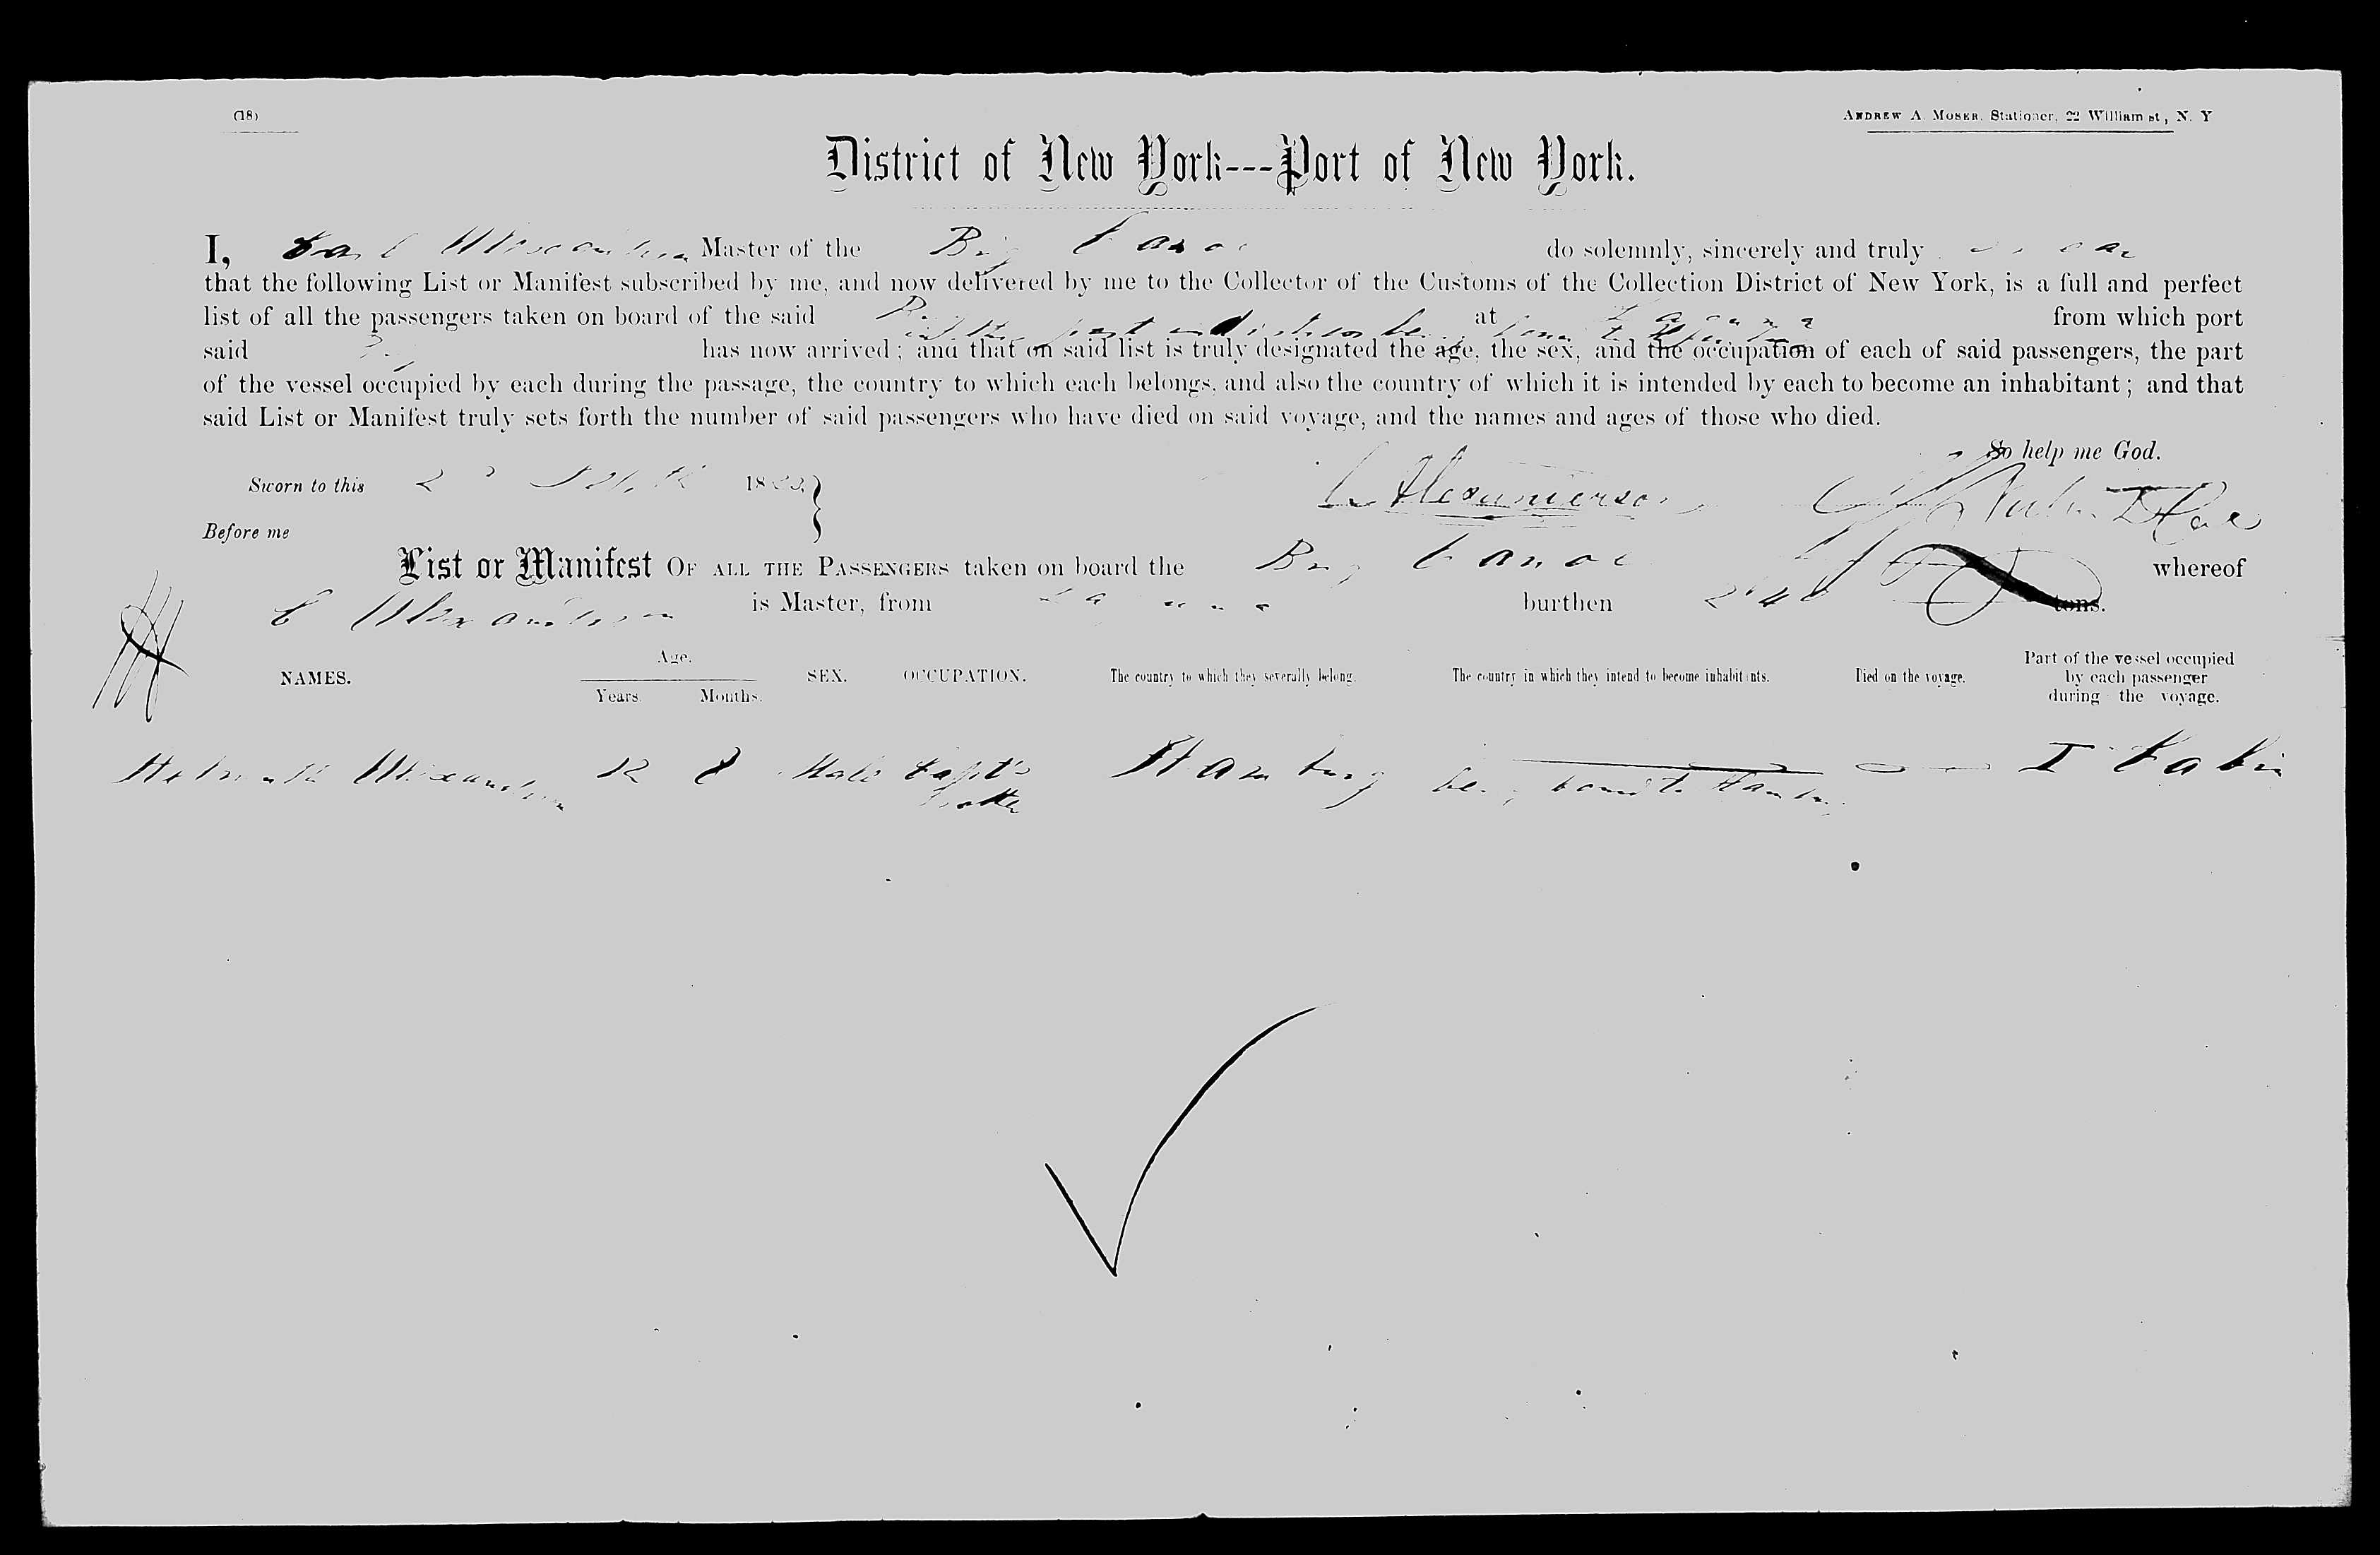 (18)
ANDREW A. MOSER, Stationer, 22 William st., N. Y
District of New York---Port of New York.
I, Carl Alexandersen Master of the Brig do solemnly, sincerely and truly swear
that the following List or Manifest subscribed by me, and now delivered by me to the Collector of the Customs of the Collection District of New York, is a full and perfect
list of all the passengers taken on board of the said at Laguna from which port
said has now arrived; and that on said list is truly designated the age, the sex, and the occupation of each of said passengers, the part
of the vessel occupied by each during the passage, the country to which each belongs, and also the country of which it is intended by each to become an inhabitant; and that
said List or Manifest truly sets forth the number of said passengers who have died on said voyage, and the names and ages of those who died.
So help me God.
Sworn to this 18
C. Alexandersen
Before me
List or Manifest OF ALL THE PASSENGERS taken on board the Brig whereof
C Alexandersen is Master, from Laguna burthen tons.
NAMES. Age. Years. Months. SEX. OCCUPATION. The country to which they severally belong. The country in which they intend to become inhabitants. Died on the voyage. Part of the vessel occupied by each passenger during the voyage.
Alexandersen 12 8 Male Capt's Hamburg being bound to Hamburg I Cabin
brother